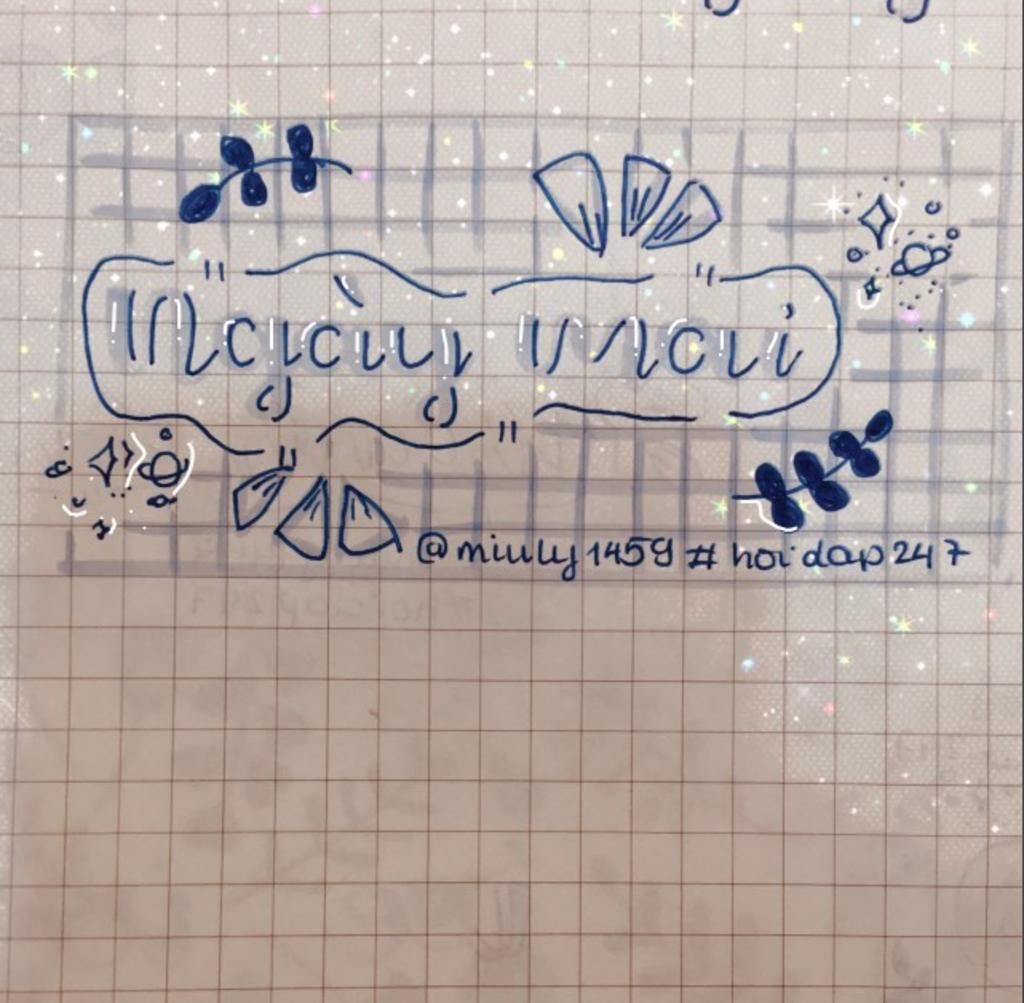 Ngày mai
@miuly1459 #hoidap247